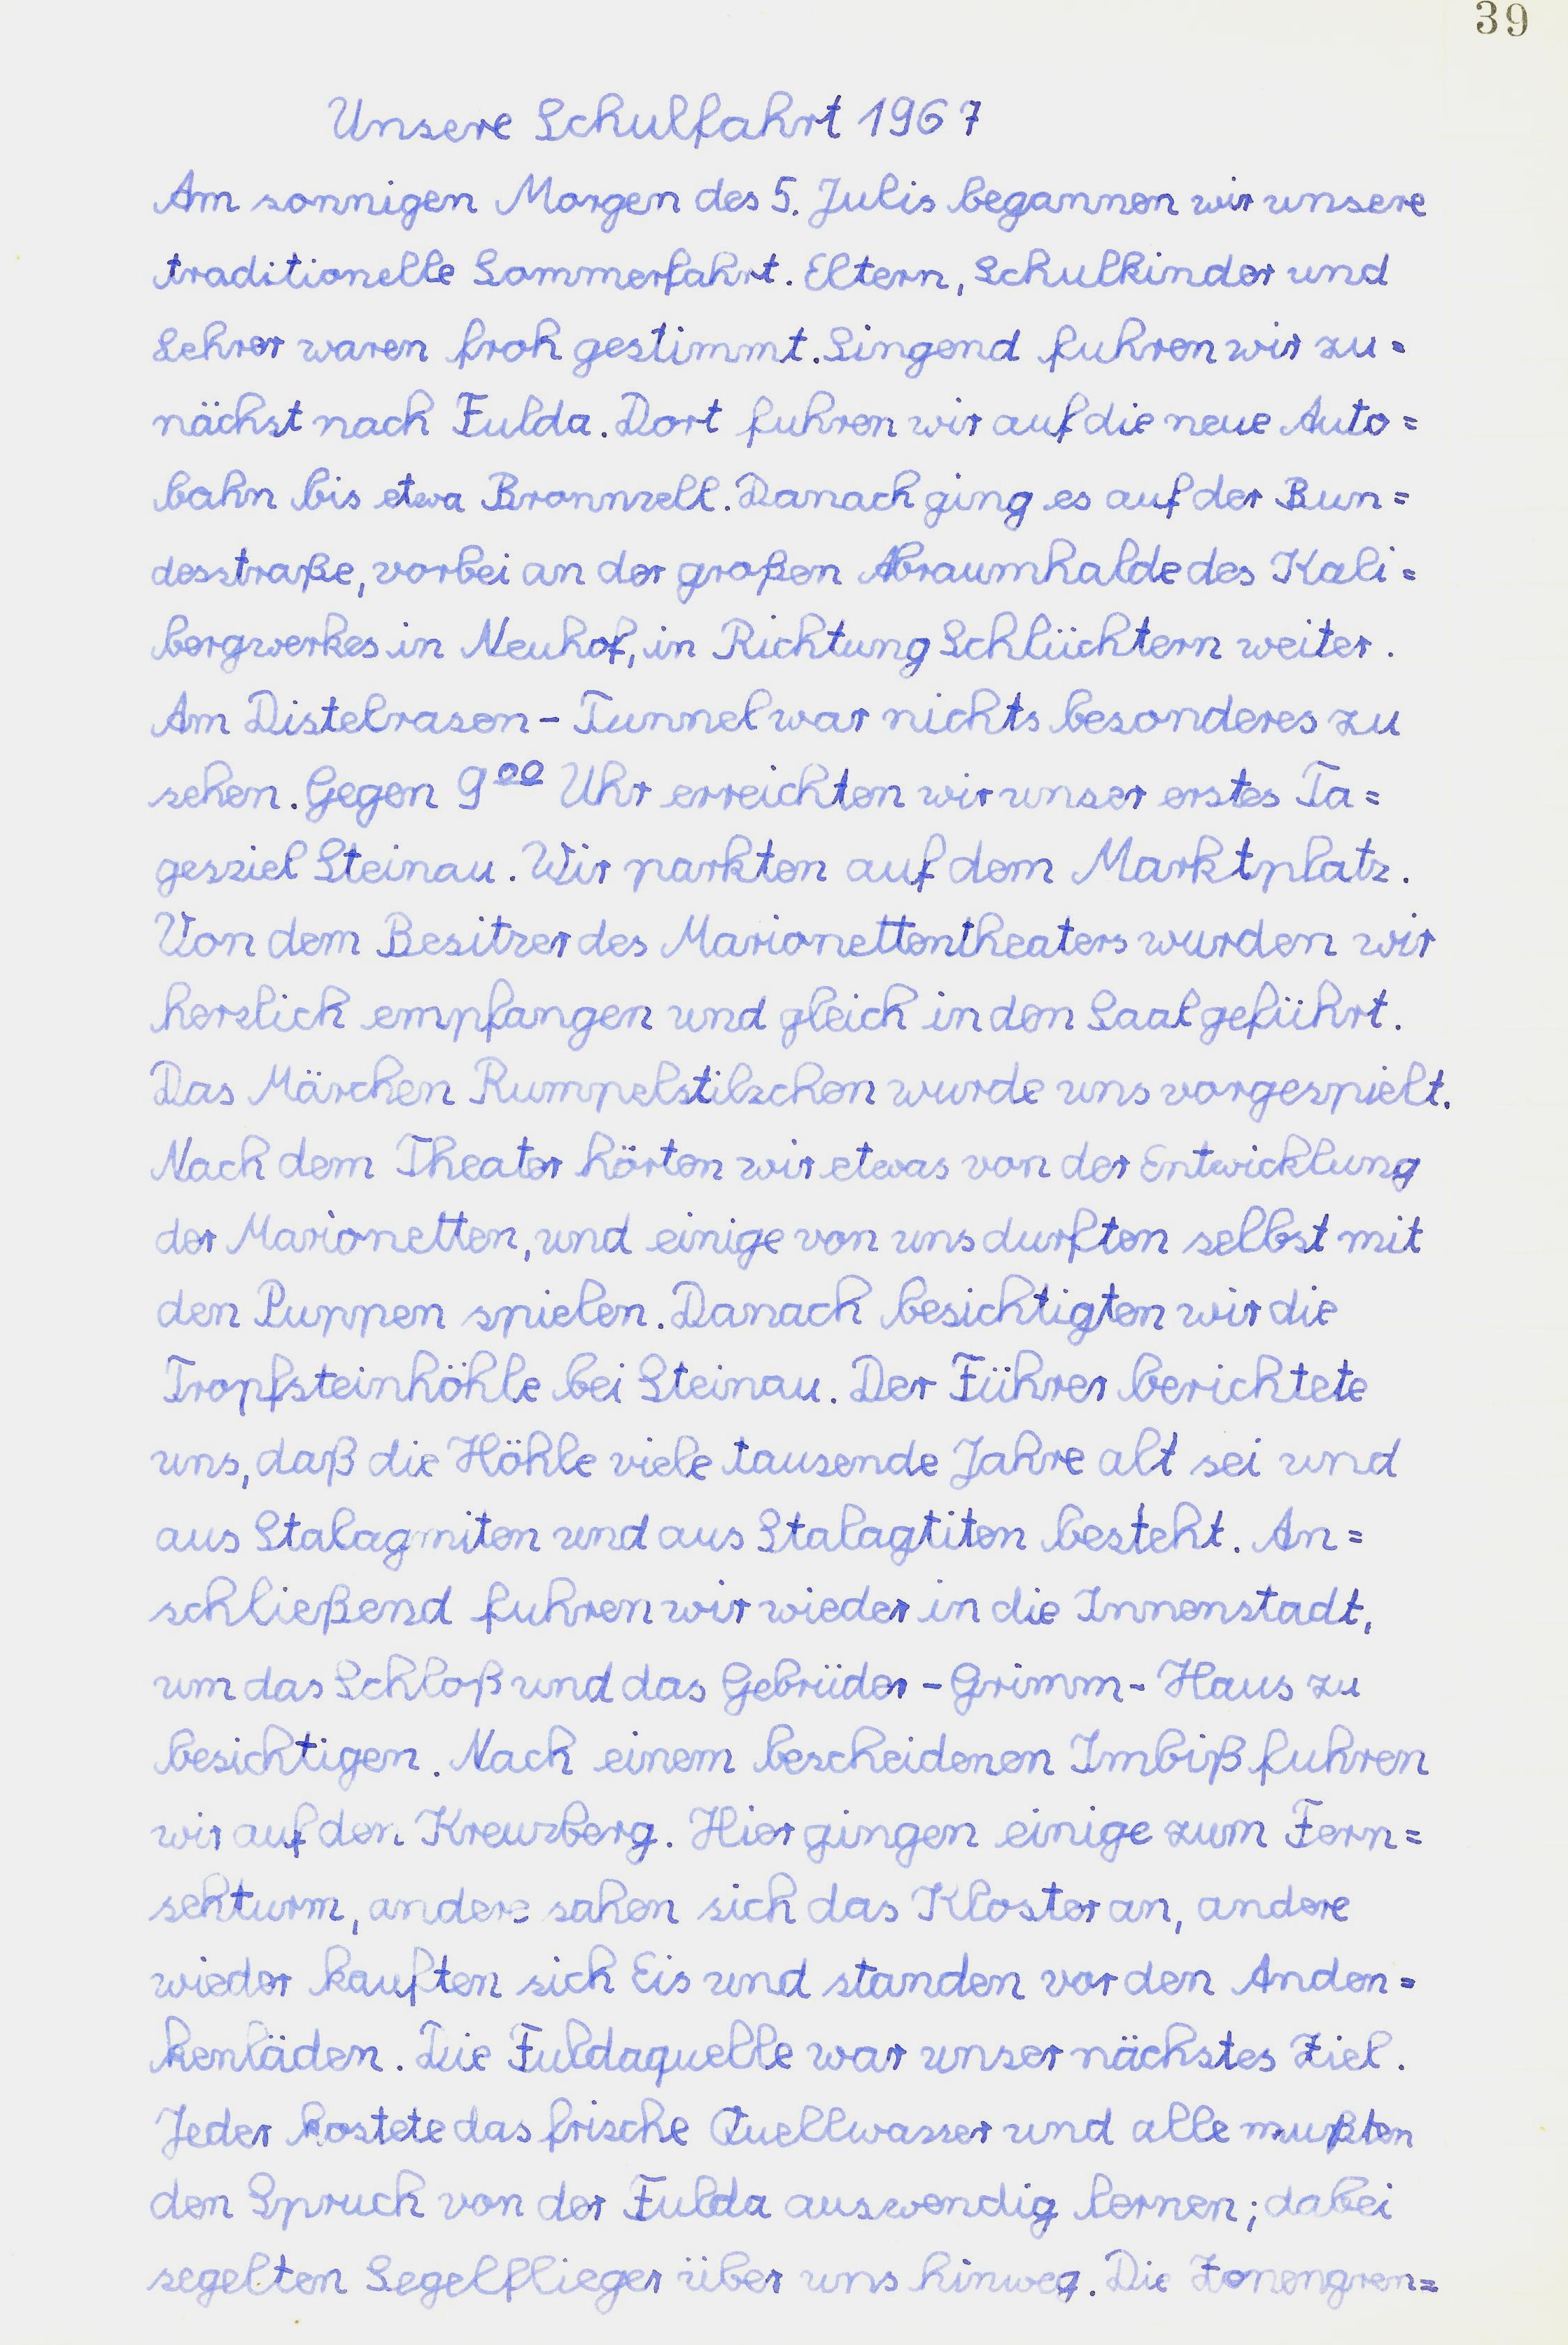 39
Unsere Schulfahrt 1967
Am sonnigen Morgen des 5. Julis begannen wir unsere
traditionelle Sommerfahrt. Eltern, Schulkinder und
Lehrer waren froh gestimmt. Singend fuhren wir zu=
nächst nach Fulda. Dort fuhren wir auf die neue Auto=
bahn bis etwa Bronnzell. Danach ging es auf der Bun=
desstraße, vorbei an der großen Abraumhalde des Kali=
bergwerkes in Neuhof, in Richtung Schlüchtern weiter.
Am Distelrasen-Tunnel war nichts besonderes zu
sehen. Gegen 9⁰⁰ Uhr erreichten wir unser erstes Ta=
gesziel Steinau. Wir parkten auf dem Marktplatz.
Von dem Besitzer des Marionettentheaters wurden wir
herzlich empfangen und gleich in den Saal geführt.
Das Märchen Rumpelstilzchen wurde uns vorgespielt.
Nach dem Theater hörten wir etwas von der Entwicklung
der Marionetten, und einige von uns durften selbst mit
den Puppen spielen. Danach besichtigten wir die
Tropfsteinhöhle bei Steinau. Der Führer berichtete
uns, daß die Höhle viele tausende Jahre alt sei und
aus Stalagmiten und aus Stalagtiten besteht. An=
schließend fuhren wir wieder in die Innenstadt,
um das Schloß und das Gebrüder-Grimm-Haus zu
besichtigen. Nach einem bescheidenen Imbiß fuhren
wir auf den Kreuzberg. Hier gingen einige zum Fern=
sehturm, andere sahen sich das Kloster an, andere
wieder kauften sich Eis und standen vor den Anden=
kenläden. Die Fuldaquelle war unser nächstes Ziel.
Jeder kostete das frische Quellwasser und alle mußten
den Spruch von der Fulda auswendig lernen; dabei
segelten Segelflieger über uns hinweg. Die Zonengren=